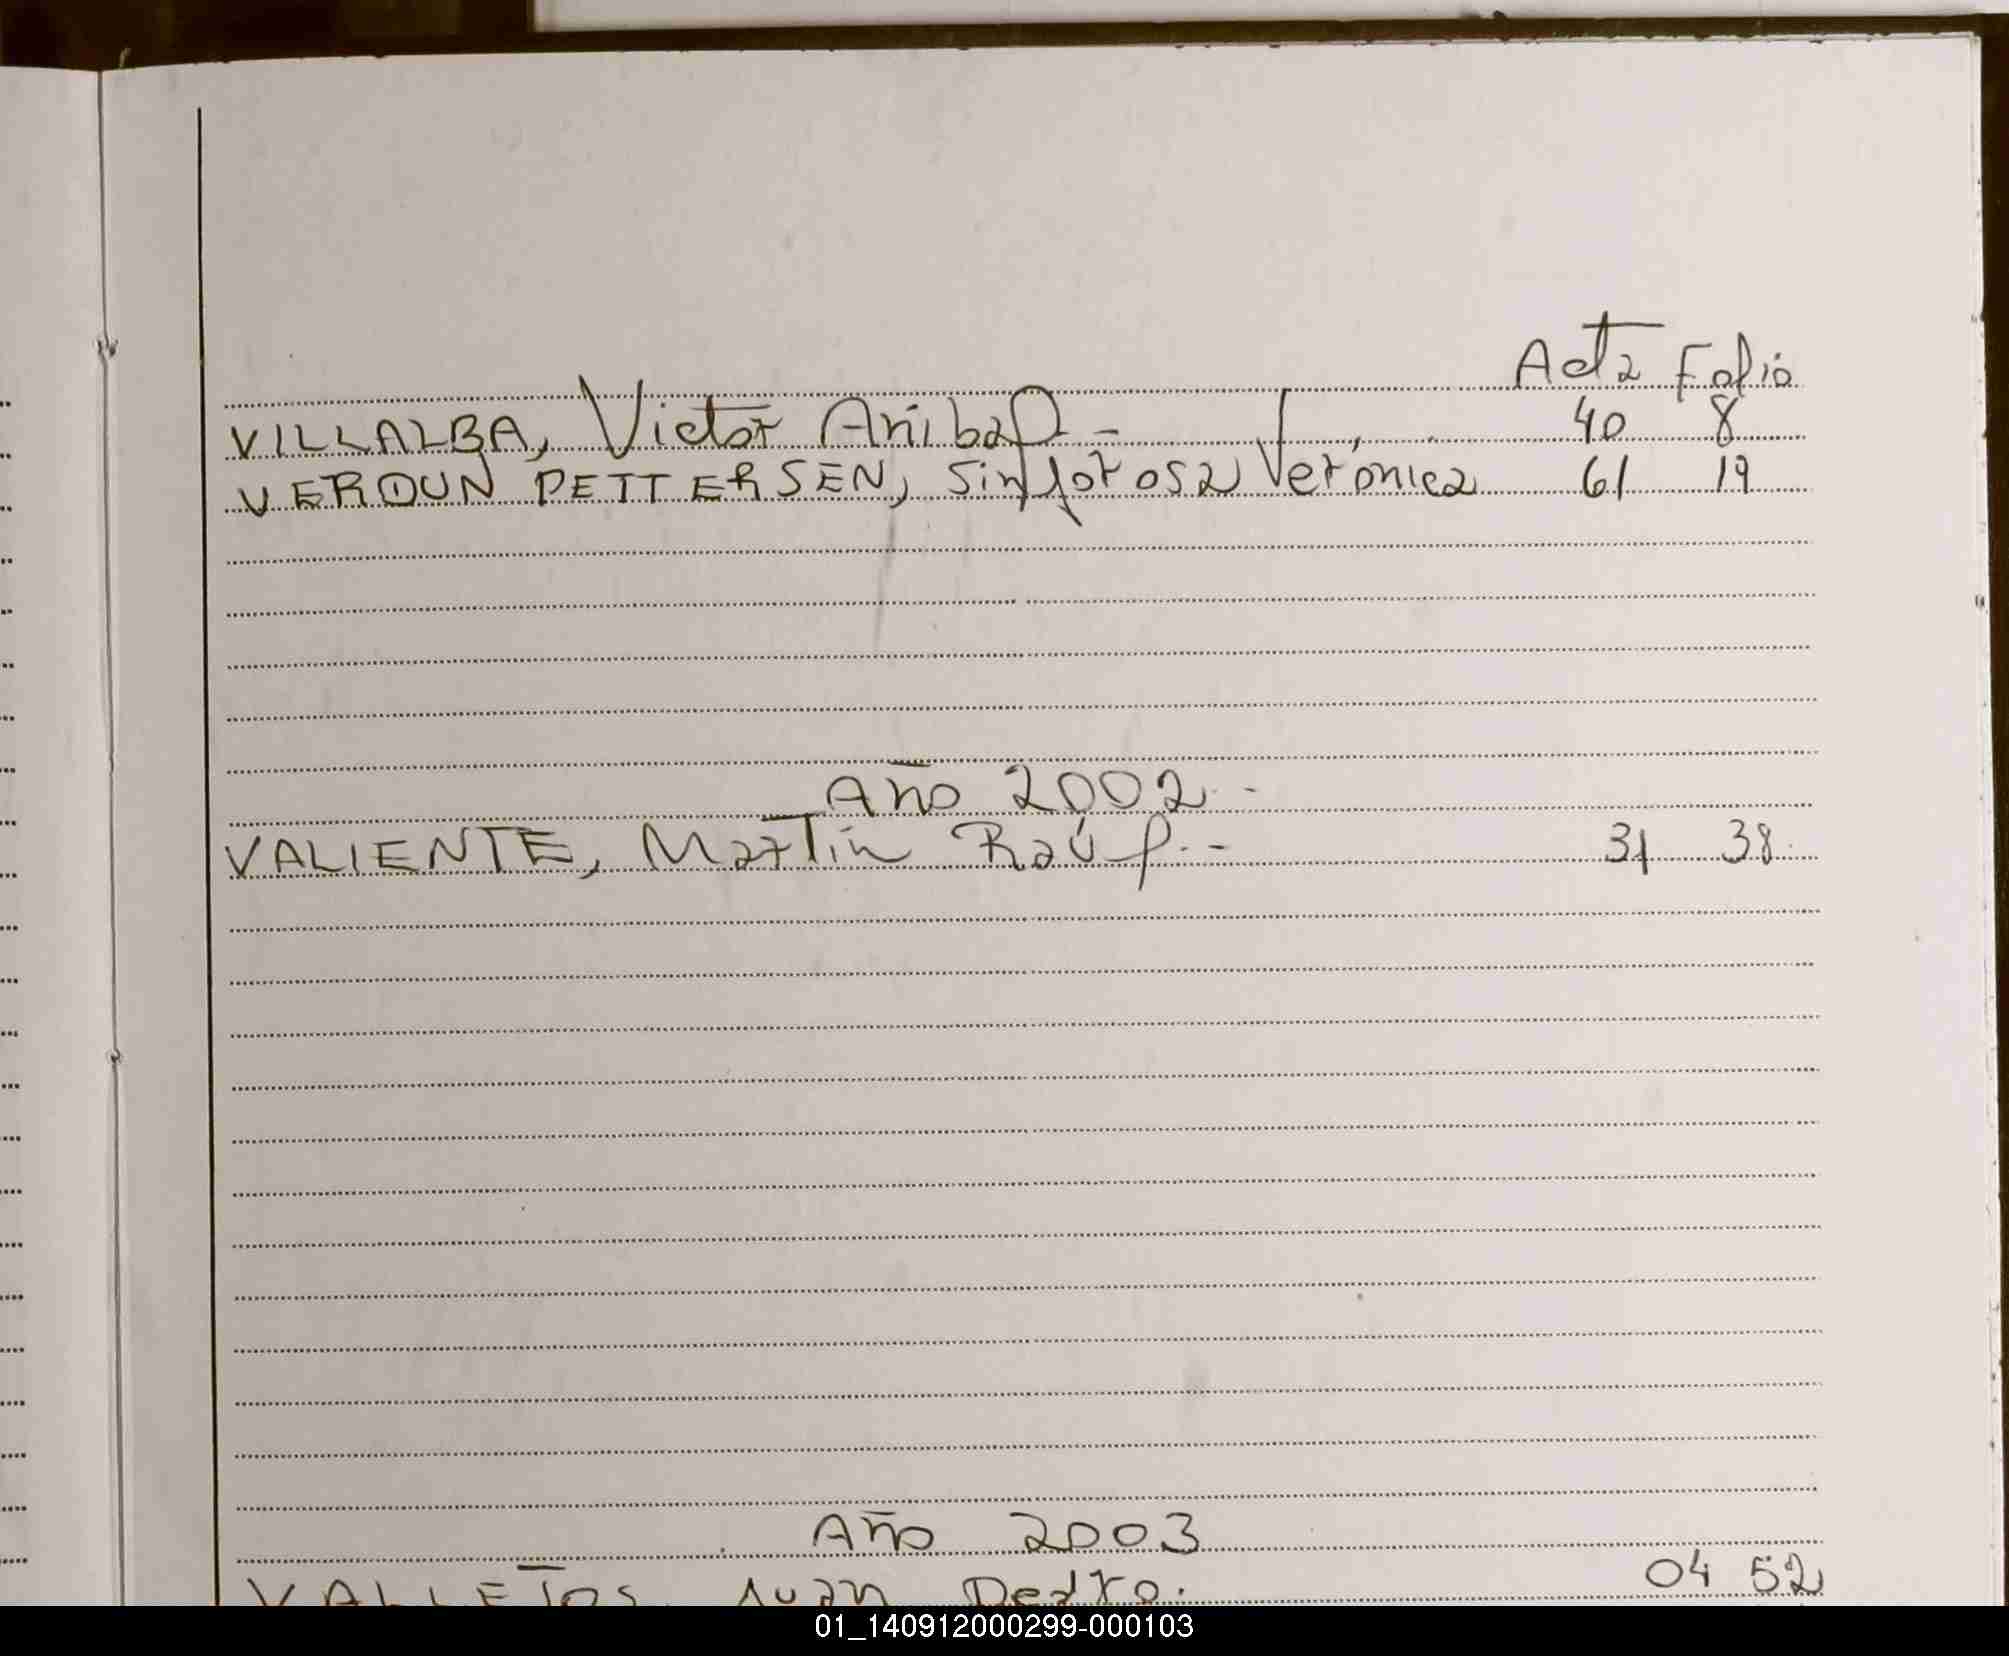 Acta Folio
VILLALBA, Victor Anibal - 40 8
VERDUN PETTERSEN, Sinforosa Verónica 61 19
Año 2002.-
VALIENTE, Martín Raúl.- 31 38
Año 2003
VALLEJOS, Juan Pedro. 04 52
01_140912000299-000103